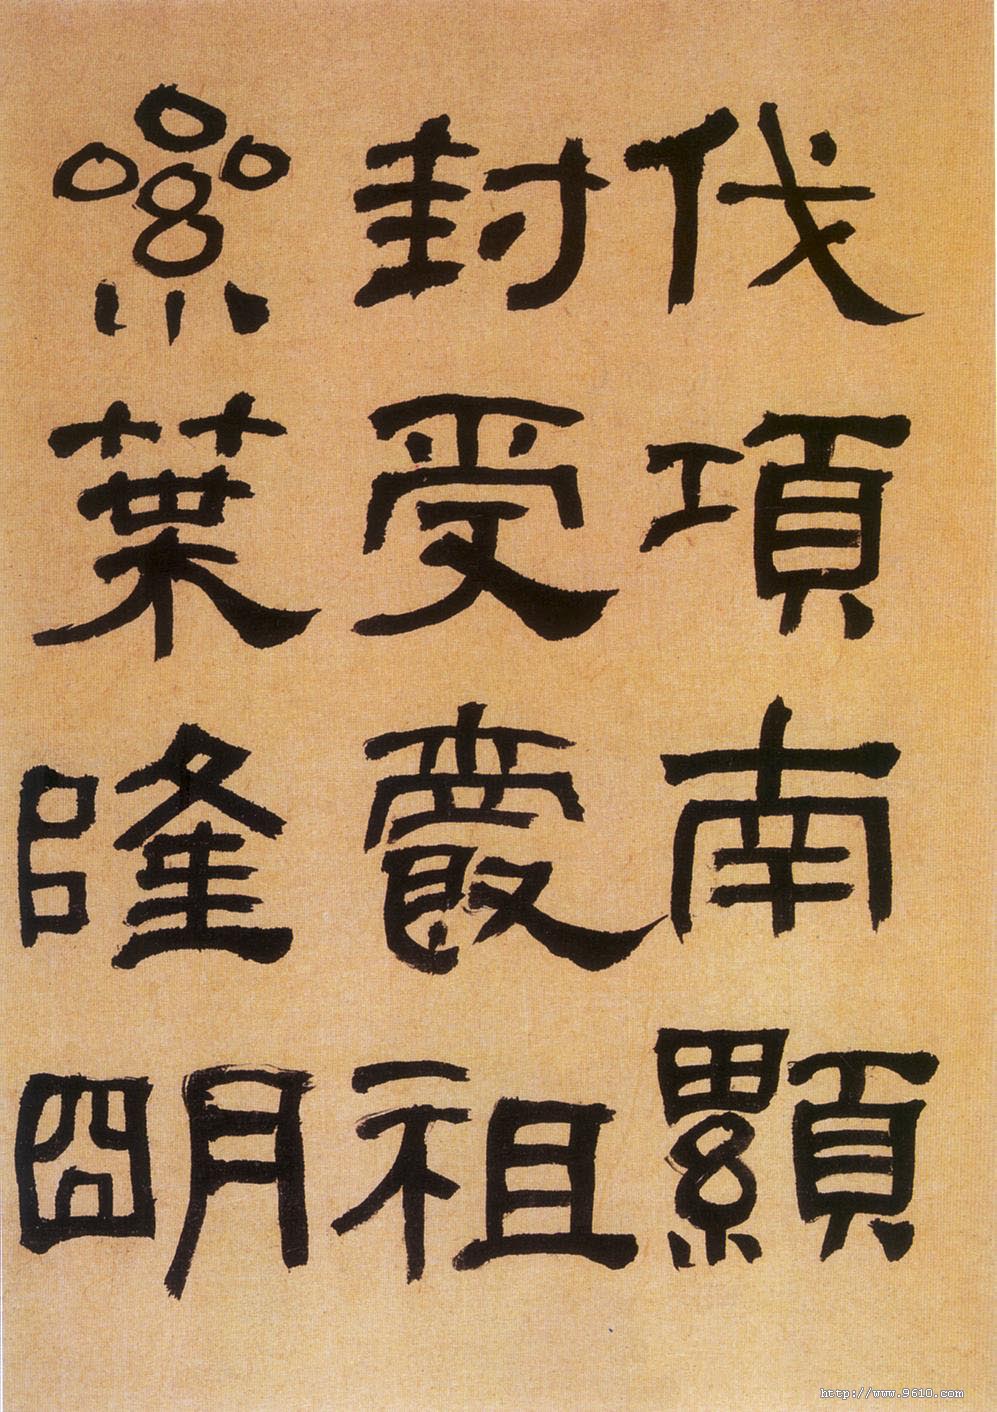 伐項南顯
封受祖
絫葉隆朙
http://www.9610.com